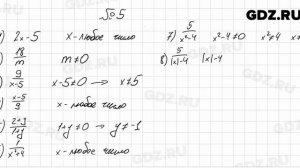 GDZ.RU
№5
) 2x-5 x-любое число
) 18/m m≠0
) 9/(x-5) x-5≠0 → x≠5
) (x-5)/9 x-любое число
) (2+y)/(1+y) 1+y≠0 → y≠-1
) 1/(x²+4) x-любое число
7) 5/(x²-4) x²-4≠0 x²≠4 x
8) 5/(|x|-4) |x|-4
GDZ.RU